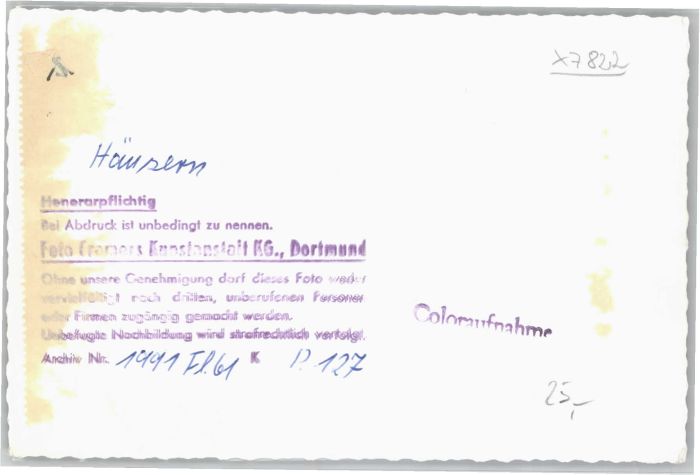 X7822
Häusern
Henerarpflichtig
Bei Abdruck ist unbedingt zu nennen.
Foto Cramers Kunstanstalt KG., Dortmund
Ohne unsere Genehmigung darf dieses Foto weder
vervielfältigt noch dritten, unberufenen Personen
oder Firmen zugängig gemacht werden.
Unbefugte Nachbildung wird strafrechtlich verfolgt.
Archiv Nr. 1991 Fl.61 K P. 127
Coloraufnahme
25,-